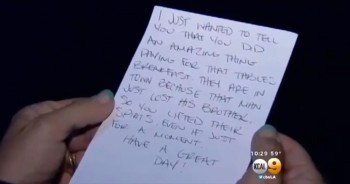 I JUST WANTED TO TELL
YOU THAT YOU DID
AN AMAZING THING
PAYING FOR THAT TABLES
BREAKFAST. THEY ARE IN
TOWN BECAUSE THAT MAN
JUST LOST HIS BROTHER.
SO YOU LIFTED THEIR
SPIRITS EVEN IF JUST
FOR A MOMENT
HAVE A GREAT
DAY!
10:29 59°
KCAL 9